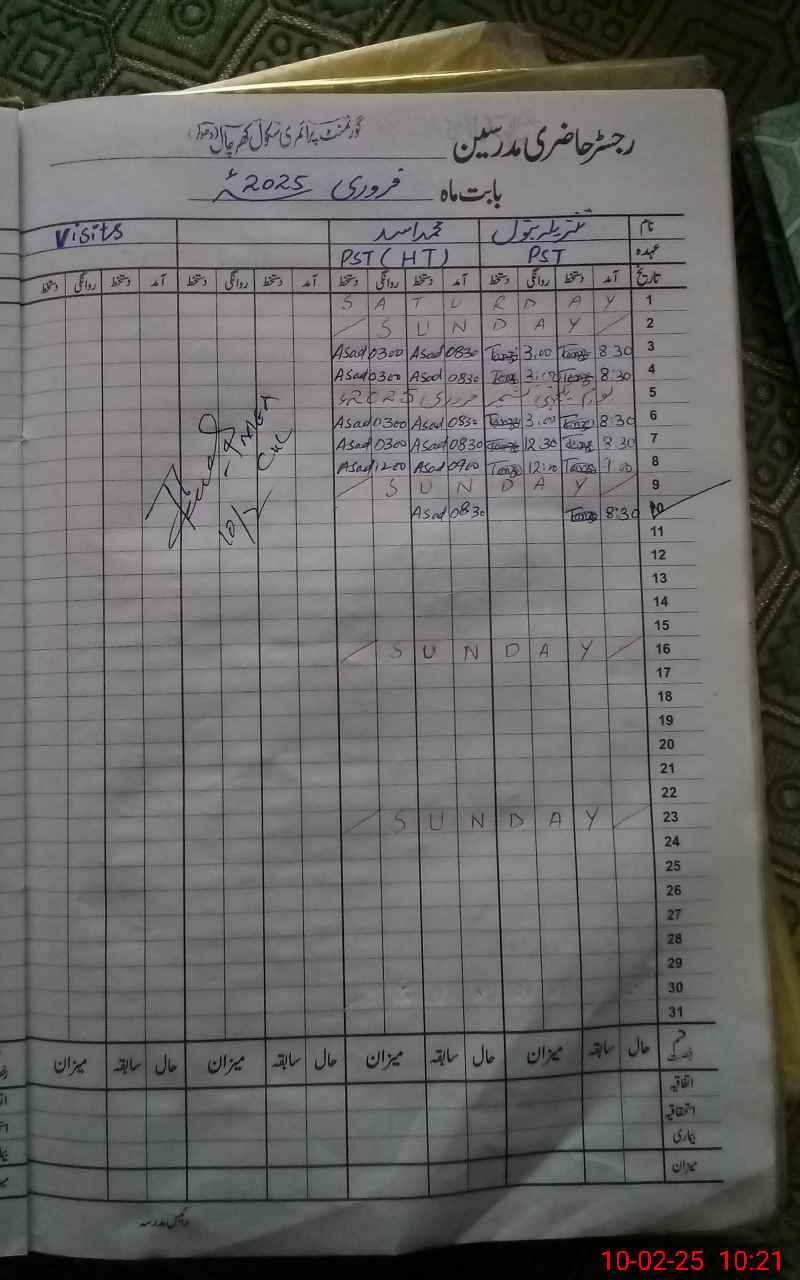 گورنمنٹ پرائمری سکول کھر چال (دھوک)
رجسٹر حاضری مدرسین
بابت ماہ فروری 2025ء
نام تنزیلہ بتول محمد اسد Visits
عہدہ PST PST (HT)
تاریخ آمد دستخط روانگی دستخط آمد دستخط روانگی دستخط آمد دستخط روانگی دستخط آمد دستخط روانگی دستخط
1 SATURDAY
2 SUNDAY
3 8:30 3:00 0830 Asad 0300 Asad
4 8:30 0830 Asad 0300 Asad
5 2025
6 8:30 3:00 0830 Asad 0300 Asad
7 8:30 12:30 0830 Asad 0300 Asad
8 9:00 12:00 0900 Asad 1200 Asad
9 SUNDAY
10 8:30 0830 Asad
10/2
11
12
13
14
15
16 SUNDAY
17
18
19
20
21
22
23 SUNDAY
24
25
26
27
28
29
30
31
حال سابقہ میزان حال سابقہ میزان حال سابقہ میزان حال سابقہ میزان
اتفاقیہ
استحقاقیہ
بیماری
میزان
رئیس مدرسہ
10-02-25 10:21